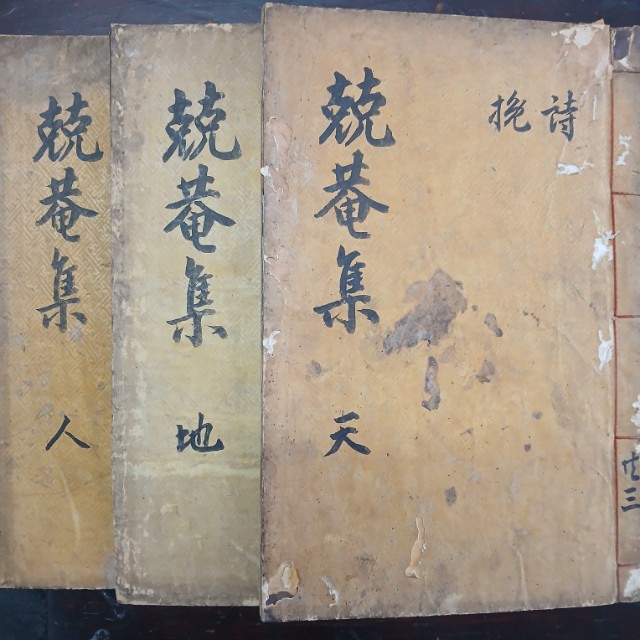 詩
挽
兢菴集 天
共三
兢菴集 地
兢菴集 人